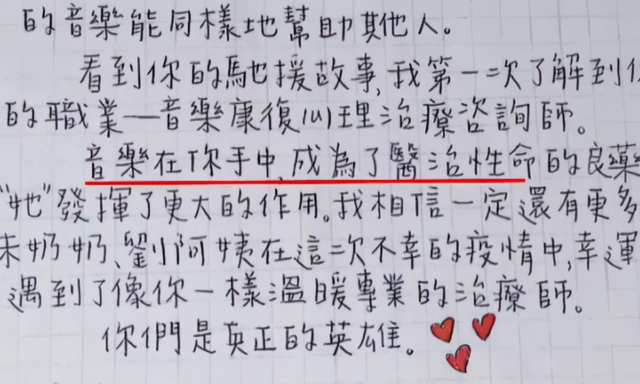 的音樂能同樣地幫助其他人。
看到你的馳援故事,我第一次了解到
的職業—音樂康復心理治療咨詢師。
音樂在你手中,成為了醫治性命的良藥
"她"發揮了更大的作用。我相信一定還有更多
朱奶奶、劉阿姨在這次不幸的疫情中,幸運
遇到了像你一樣溫暖專業的治療師。
你們是真正的英雄。